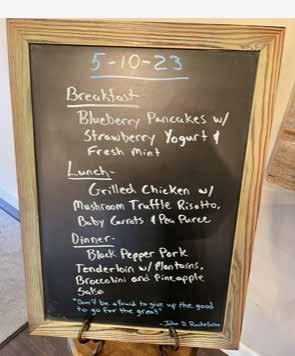 5-10-23
Breakfast-
Blueberry Pancakes w/
Strawberry Yogurt &
Fresh Mint
Lunch-
Grilled Chicken w/
Mushroom Truffle Risotto,
Baby Carrots & Pea Puree
Dinner-
Black Pepper Pork
Tenderloin w/ Plantains,
Broccolini and Pineapple
Salsa
"Don't be afraid to give up the good
to go for the great"
- John D. Rockefeller